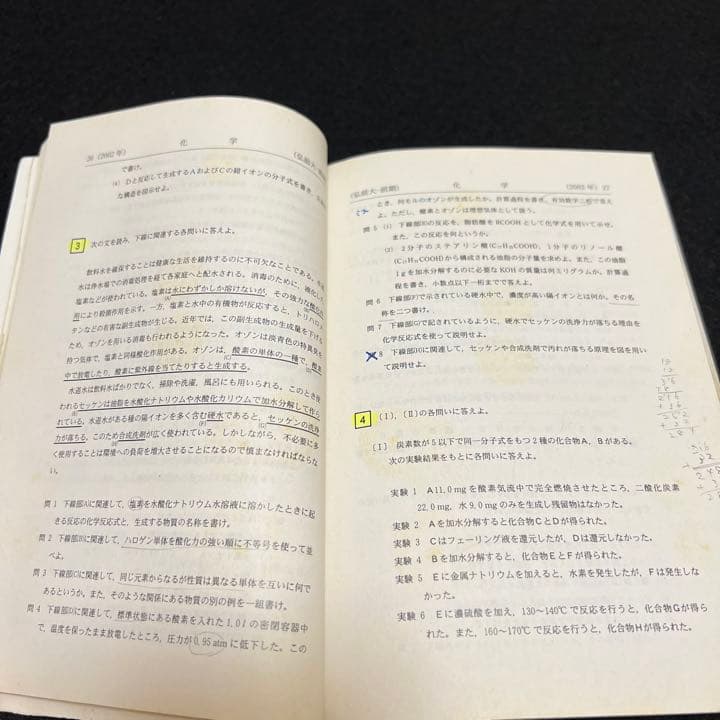 26 (2002年) 化 学 (弘前大-前期)
で書け。
(4) Dと反応して生成するAおよびCの錯イオンの分子式を書き、
な構造を図示せよ。
3 次の文を読み、下線に関連する各問いに答えよ。
飲料水を確保することは健康な生活を維持するのに不可欠なことである。
水は浄水場での消毒処理を経て各家庭へと配水される。消毒のために、液化した
塩素などが使われている。塩素は水にわずかしか溶けないが、その強力な酸化
作用により殺菌作用を示す。一方、塩素と水中の有機物が反応すると、トリハロメ
タンなどの有害な副生成物が生じる。近年では、この副生成物の生成量を下げる
ため、オゾンを用いる消毒も行われるようになった。オゾンは淡青色の特異臭を
持つ気体で、塩素と同様酸化作用がある。オゾンは、酸素の単体の一種で、酸素
中で放電したり、酸素に紫外線を当てたりすると生成する。
水道水は飲料水ばかりでなく、掃除や洗濯、風呂にも用いられる。このとき使
われるセッケンは油脂を水酸化ナトリウムや水酸化カリウムで加水分解して作ら
れている。水道水がある種の陽イオンを多く含む硬水であると、セッケンの洗浄
力が落ちる。このため合成洗剤が広く使われている。しかしながら、不必要に多
く使用することは環境への負荷を増大させることになるので慎まなければならな
い。
問 1 下線部(A)に関連して、塩素を水酸化ナトリウム水溶液に溶かしたときに起
きる反応の化学反応式と、生成する物質の名称を書け。
問 2 下線部(B)に関連して、ハロゲン単体を酸化力の強い順に不等号を使って並
べよ。
問 3 下線部(C)に関連して、同じ元素からなるが性質は異なる単体を互いに何で
あるというか。また、そのような関係にある物質の別の例を一組書け。
問 4 下線部(D)に関連して、標準状態にある酸素を入れた1.0 l の密閉容器中
で、温度を保ったまま放電したところ、圧力が0.95 atm に低下した。この
(弘前大-前期) 化 学 (2002年) 27
とき、何モルのオゾンが生成したか。計算過程を書き、有効数字二桁で答え
よ。ただし、酸素とオゾンは理想気体として扱う。
問 5 (1) 下線部(E)の反応を、脂肪酸を RCOOH として化学式を用いて示せ。
また、この反応を何というか。
(2) 2分子のステアリン酸(C₁₇H₃₅COOH)、1分子のリノール酸
(C₁₇H₃₁COOH)から構成される油脂の分子量を求めよ。また、この油脂
1gを加水分解するのに必要な KOH の質量は何ミリグラムか。計算過
程を書き、小数点以下一桁まで答えよ。
問 6 下線部(F)で示されている硬水中で、濃度が高い陽イオンとは何か。その名
称を二つ書け。
問 7 下線部(G)で記されているように、硬水でセッケンの洗浄力が落ちる理由を
化学反応式を使って説明せよ。
問 8 下線部(H)に関連して、セッケンや合成洗剤で汚れが落ちる原理を図を用い
て説明せよ。
4 〔I〕、〔II〕の各問いに答えよ。
〔I〕 炭素数が5以下で同一分子式をもつ2種の化合物A、Bがある。
次の実験結果をもとに各問いに答えよ。
実験 1 A11.0 mg を酸素気流中で完全燃焼させたところ、二酸化炭素
22.0 mg、水 9.0 mg のみを生成し残留物はなかった。
実験 2 Aを加水分解すると化合物CとDが得られた。
実験 3 Cはフェーリング液を還元したが、Dは還元しなかった。
実験 4 Bを加水分解すると、化合物EとFが得られた。
実験 5 Eに金属ナトリウムを加えると、水素を発生したが、Fは発生しな
かった。
実験 6 Eに濃硫酸を加え、130〜140℃で反応を行うと、化合物Gが得ら
れた。また、160〜170℃で反応を行うと、化合物Hが得られた。